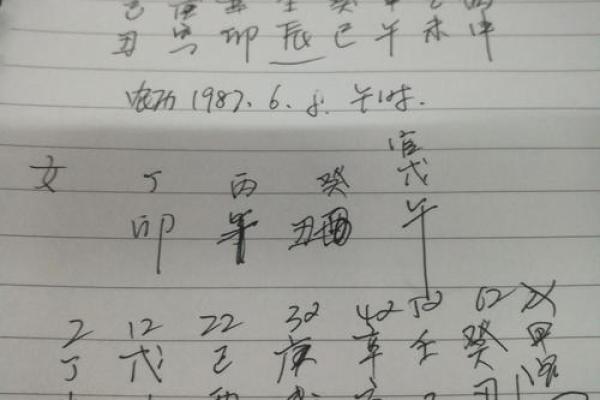 己 庚 辛 壬 癸 甲 乙 丙
丑 寅 卯 辰 巳 午 未 申
农历 1987. 6. 8. 午时.
官
女 丁 丙 癸 戊
卯 午 丑 酉 午
2 12 22 32 42 52 62
丁 戊 己 庚 辛 壬 癸 甲